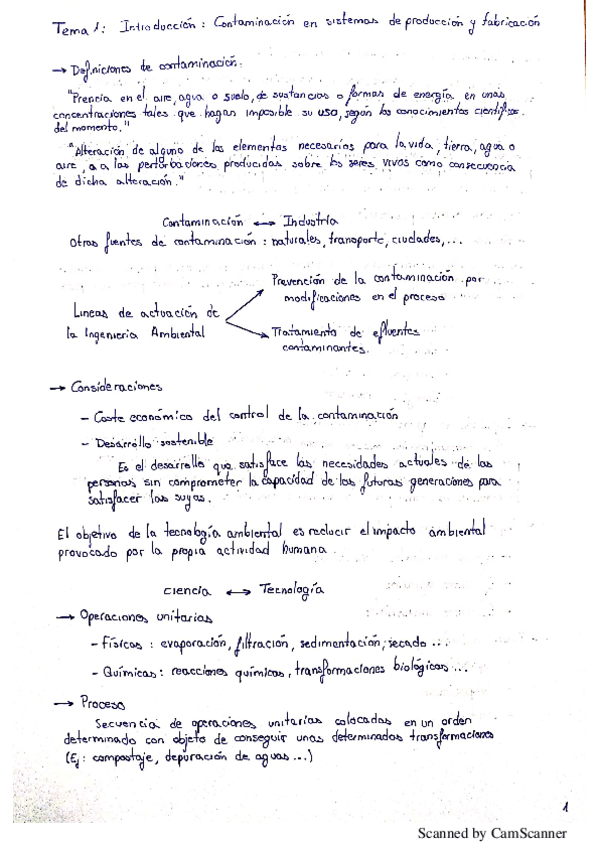 Tema 1: Introducción: Contaminación en sistemas de producción y fabricación
→ Definiciones de contaminación:
"Prencia en el aire, agua o suelo, de sustancias o formas de energía en unas
concentraciones tales que hagan imposible su uso, según los conocimientos científicos
del momento."
"Alteración de alguno de los elementos necesarios para la vida, tierra, agua o
aire, o a las perturbaciones producidas sobre los seres vivos como consecuencia
de dicha alteración."
Contaminación ↔ Industria
Otras fuentes de contaminación: naturales, transporte, ciudades,...
Prevención de la contaminación por
modificaciones en el proceso
Líneas de actuación de
la Ingeniería Ambiental
Tratamiento de efluentes
contaminantes.
→ Consideraciones
- Coste económico del control de la contaminación
- Desarrollo sostenible
Es el desarrollo que satisface las necesidades actuales de las
personas sin comprometer la capacidad de las futuras generaciones para
satisfacer las suyas.
El objetivo de la tecnología ambiental es reducir el impacto ambiental
provocado por la propia actividad humana
Ciencia ↔ Tecnología
→ Operaciones unitarias
- Físicas: evaporación, filtración, sedimentación, secado...
- Químicas: reacciones químicas, transformaciones biológicas...
→ Proceso
Secuencia de operaciones unitarias colocadas en un orden
determinado con objeto de conseguir unas determinados transformaciones
(Ej: compostaje, depuración de aguas...)
1
Scanned by CamScanner